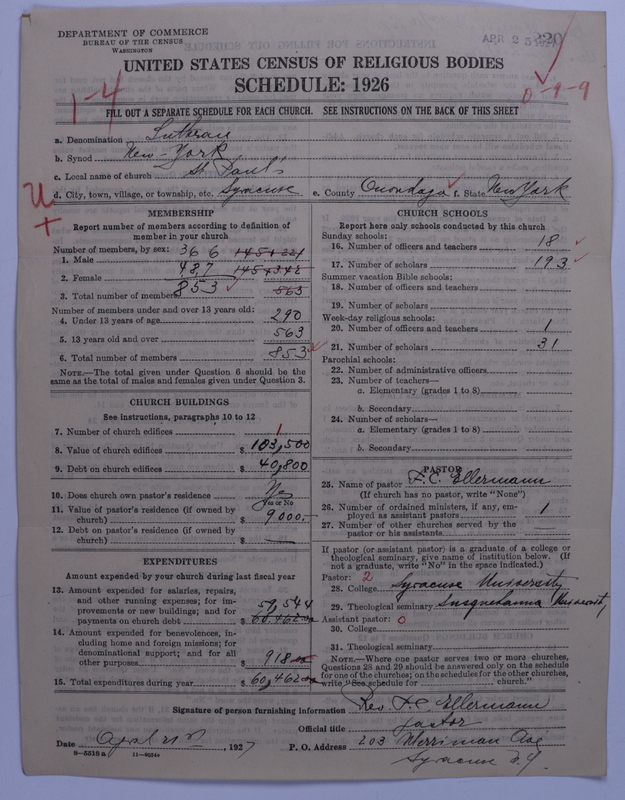 DEPARTMENT OF COMMERCE
BUREAU OF THE CENSUS
WASHINGTON
APR 25 1927
220
UNITED STATES CENSUS OF RELIGIOUS BODIES
SCHEDULE: 1926
1-4
0-9-9
FILL OUT A SEPARATE SCHEDULE FOR EACH CHURCH. SEE INSTRUCTIONS ON THE BACK OF THIS SHEET
a. Denomination Lutheran
b. Synod New York
c. Local name of church St Paul's
d. City, town, village, or township, etc. Syracuse e. County Onondaga f. State New York
MEMBERSHIP
Report number of members according to definition of
member in your church
Number of members, by sex:
1. Male 366 145+221
2. Female 487 145+342
3. Total number of members 853 563
Number of members under and over 13 years old:
4. Under 13 years of age 290
5. 13 years old and over 563
6. Total number of members 853
NOTE.—The total given under Question 6 should be the
same as the total of males and females given under Question 3.
CHURCH BUILDINGS
See instructions, paragraphs 10 to 12
7. Number of church edifices 1
8. Value of church edifices $ 103,500
9. Debt on church edifices $ 40,800
10. Does church own pastor's residence Yes
Yes or No
11. Value of pastor's residence (if owned by
church) $ 9000.
12. Debt on pastor's residence (if owned by
church) $ —
EXPENDITURES
Amount expended by your church during last fiscal year
13. Amount expended for salaries, repairs,
and other running expenses; for im-
provements or new buildings; and for
payments on church debt $ 59,544
60,462.00
14. Amount expended for benevolences, in-
cluding home and foreign missions; for
denominational support; and for all
other purposes $ 918.00
15. Total expenditures during year $ 60,462.00
CHURCH SCHOOLS
Report here only schools conducted by this church
Sunday schools:
16. Number of officers and teachers 18
17. Number of scholars 193
Summer vacation Bible schools:
18. Number of officers and teachers
19. Number of scholars
Week-day religious schools:
20. Number of officers and teachers 1
21. Number of scholars 31
Parochial schools:
22. Number of administrative officers
23. Number of teachers—
a. Elementary (grades 1 to 8)
b. Secondary
24. Number of scholars—
a. Elementary (grades 1 to 8)
b. Secondary
PASTOR
25. Name of pastor F. C. Ellermann
(If church has no pastor, write "None")
26. Number of ordained ministers, if any, em-
ployed as assistant pastors 1
27. Number of other churches served by the
pastor or his assistants —
If pastor (or assistant pastor) is a graduate of a college or
theological seminary, give name of institution below. (If
not a graduate, write "No" in the space indicated.)
Pastor: 2
28. College Syracuse University
29. Theological seminary Susquehanna University
Assistant pastor: 0
30. College
31. Theological seminary
NOTE.—Where one pastor serves two or more churches,
Questions 28 and 29 should be answered only on the schedule
for one of the churches; on the schedules for the other churches,
write "See schedule for church."
Signature of person furnishing information Rev. F. C. Ellermann
Official title Pastor
Date , 1927 P. O. Address 203 Merriman Ave
8-5318a 11-4034a
Syracuse N.Y.